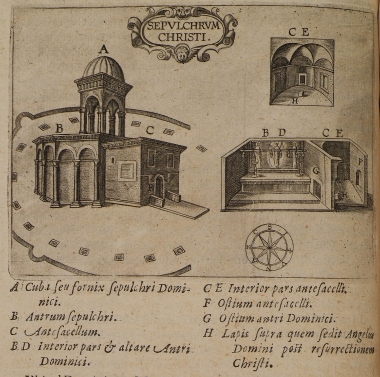 SEPVLCHRVM
CHRISTI.
A
B
C
C E
H
B D
C E
G
F
A Cuba seu fornix sepulchri Domi-
nici.
B Antrum sepulchri.
C Antesacellum.
B D interior pars & altare Antri
Dominici.
C E Interior pars antesacelli.
F Ostium antesacelli.
G Ostium antri Dominici.
H Lapis supra quem sedit Angelus
Domini post resurrectionem
Christi.